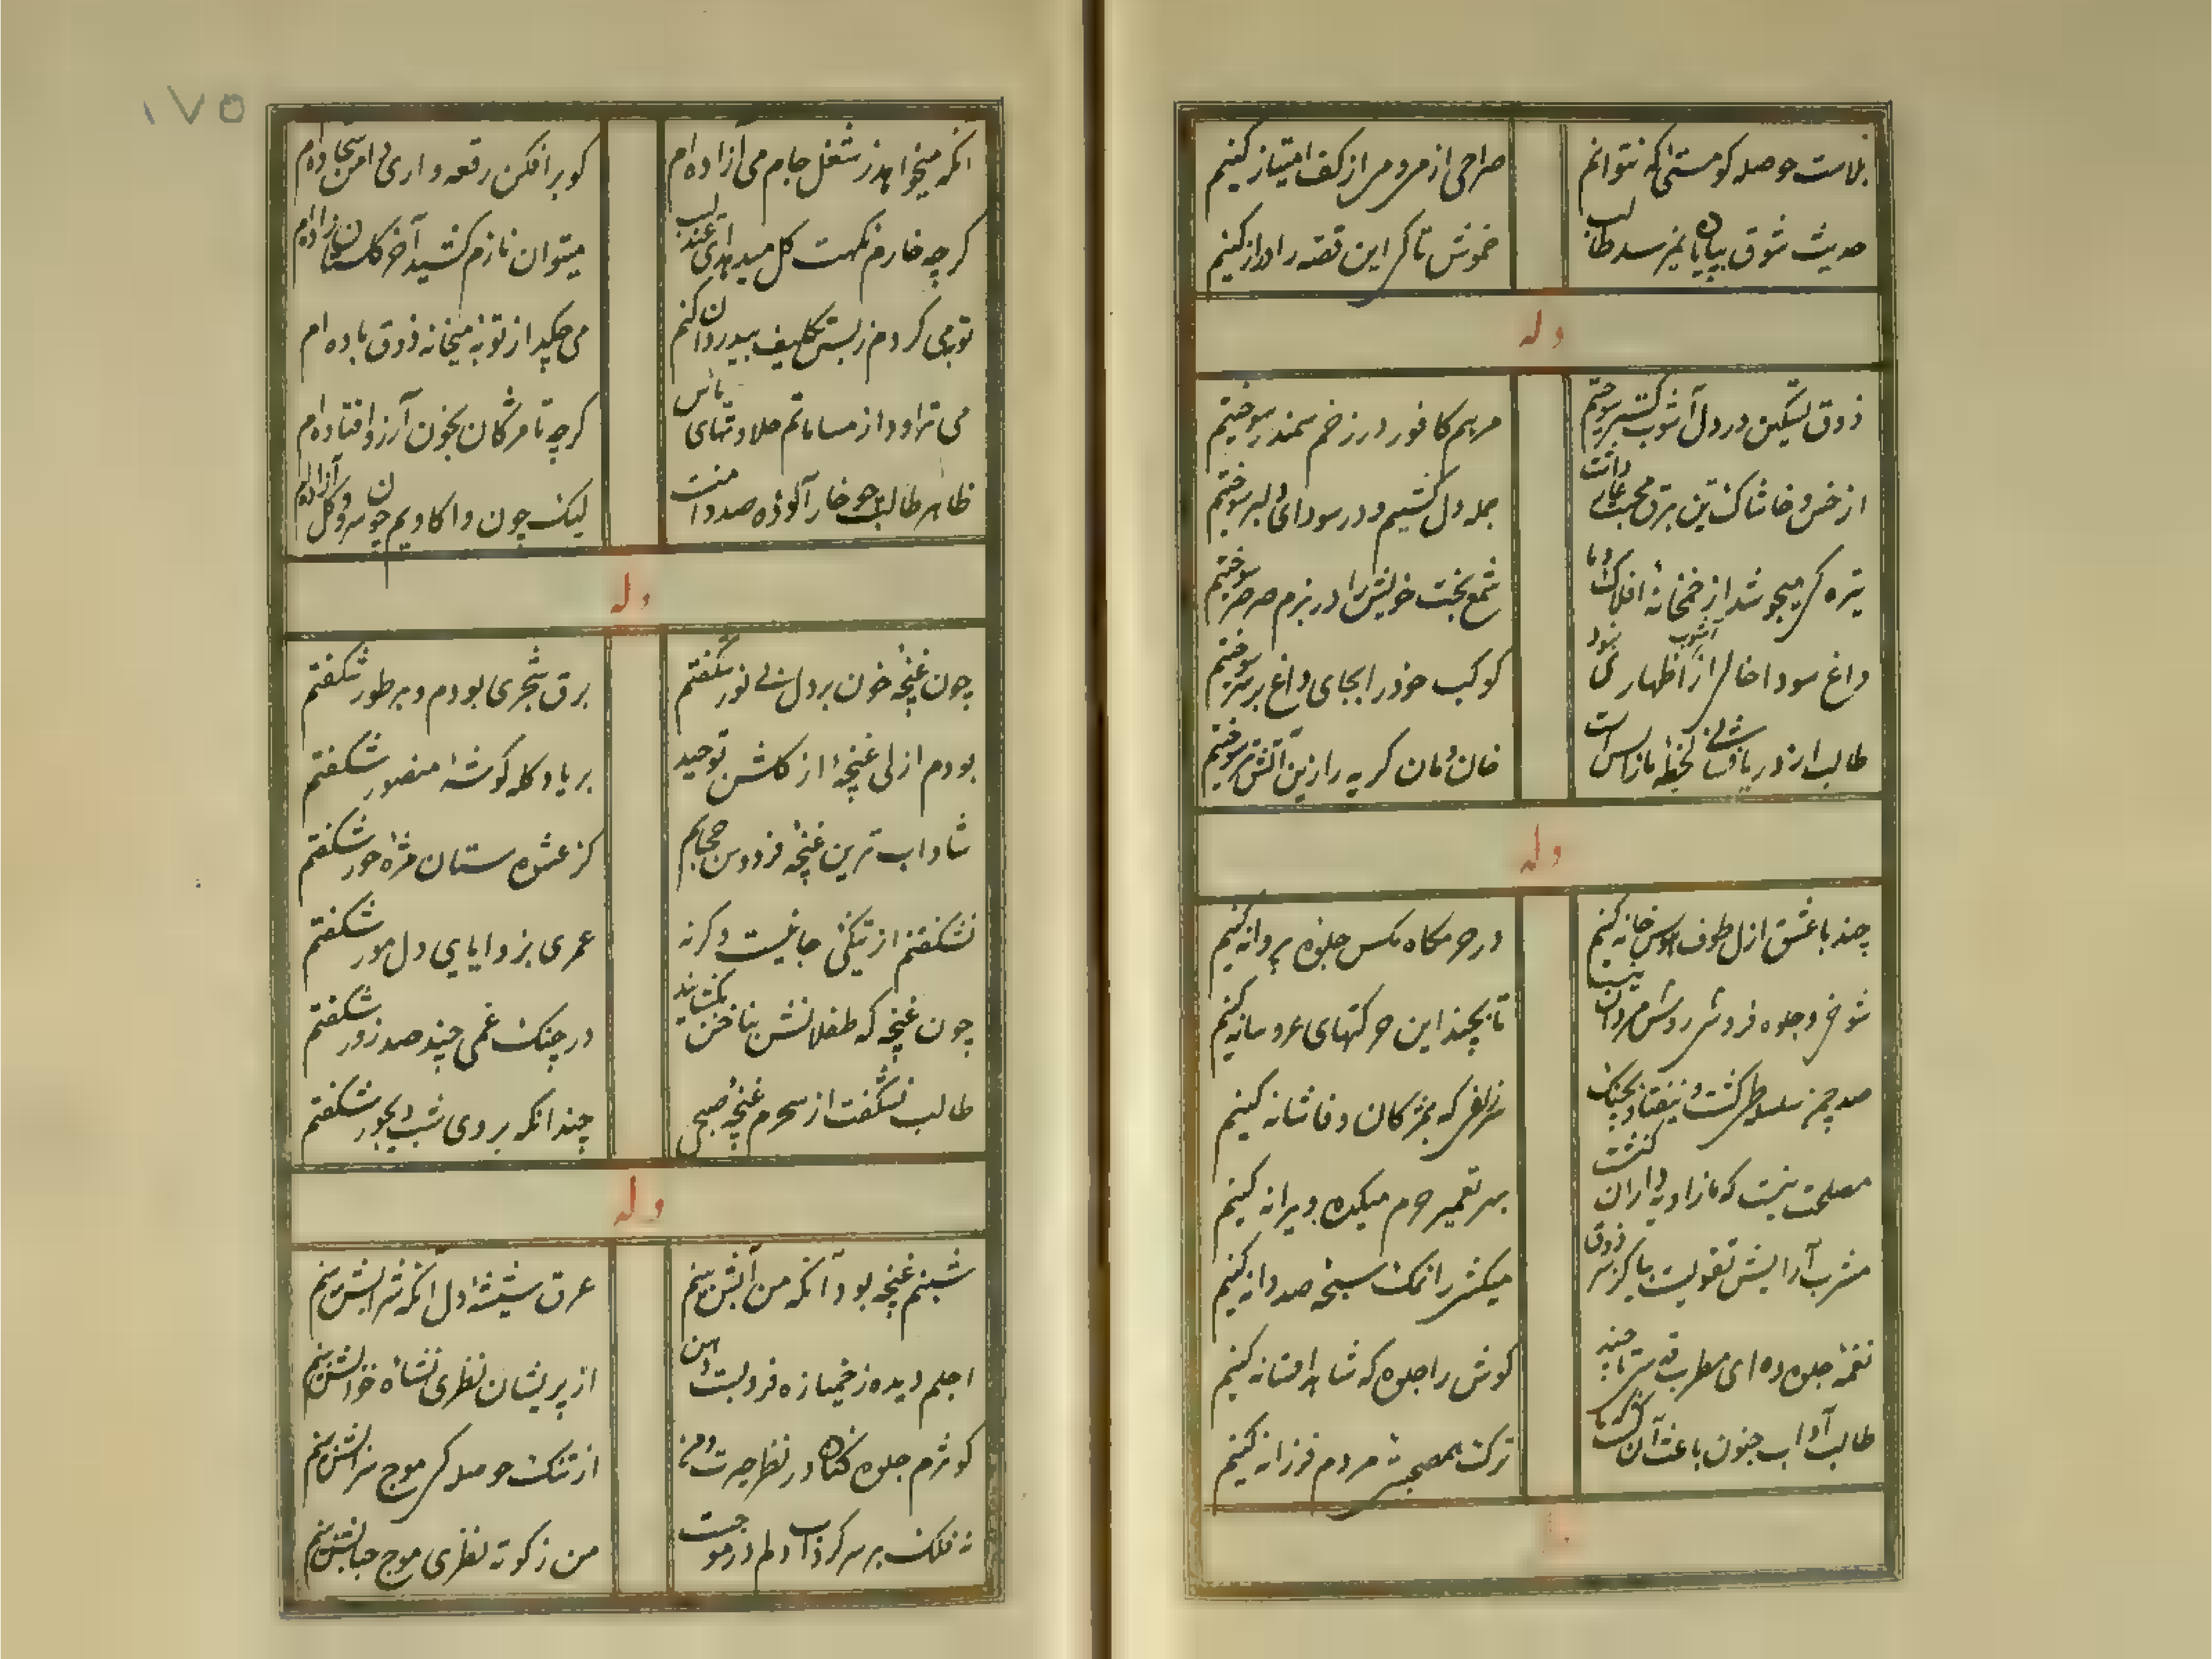 بلاست حوصله کو مستی که نتوانم
صراحی از مر و مر از کف امتیاز کنیم
حدیث شوق بپایان نمیرسد طالب
خموش تا کی این قصه را دراز کنیم
وله
ذوق تسکین در دل آشوب گستر سوختیم
مرهم کافور در زخم سمندر سوختیم
از خس و خاشاک تن برق محبت داشت
جمله دل گشتیم و در سودای دلبر سوختیم
تیره کی میجوشد از خمخانه افلاک و ما
شمع بخت خویش را در بزم صرصر سوختیم
داغ سودا خالی از اظهار آشوبی نبود
کوکب خود را بجای داغ بر سر سوختیم
طالب از دریا لحظه ما را بس است
خان و مان گریه را زین آتش تر سوختیم
وله
چند با عشق ازل طوف هوس خانه کنیم
در حرمگاه مگس جلوه پروانه کنیم
شوخی و جلوه فروشی روش مردان نیست
تا بچند این حرکتهای عروسانه کنیم
صد چمن سلسله طی گشت و نیفتاد بچنگ
زلفی که بمژگان وفا شانه کنیم
مصلحت نیست که ما زاویه داران کنشت
بهر تعمیر حرم میکده ویرانه کنیم
مشرب آرایش تقویست بیا کز سر ذوق
میکشی را نمک سبحه صد دانه کنیم
نغمه جلوه ده ای مطرب قدسی تا چند
گوش را جلوه که شاهد افسانه کنیم
طالب آداب جنون باعث آن گشت که ما
ترک همصحبتی مردم فرزانه کنیم
۱۷۵
آنکه میخواهد ز شغل جام می آزاده ام
کو برافکن رقعه واری دامن سجاده ام
گرچه خارم نکهت گل میدهد ای عندلیب
میتوان نازم کشید آخر گلستان زاده ام
توبه می کردم ز بس تکلیف بیدردان کنم
می چکد از توبه میخانه ذوق باده ام
می تراود از مساماتم حلاوتهای یاس
گرچه تا مژگان بخون آرزو افتاده ام
ظاهر طالب چو خار آلوده صد منت
لیک چون وا کاویم چون سرو و گل آزاده ام
وله
چون غنچه خون بر دل بی نور شگفتم
برق شجری بودم و بر طور شکفتم
بودم ازلی غنچه از گلشن توحید
بر یاد کله گوشه منصور شکفتم
شاداب ترین غنچه فردوس حجابم
کز عشوه ستان مژه حور شکفتم
نشکفتنم از تنگی جا نیست وگرنه
عمری بزوایای دل مور شکفتم
چون غنچه که طفلانش بناخن بگشایند
در چنگ غمی چند بصد زور شکفتم
طالب نشگفت از سحرم غنچه صبحی
چندانکه بروی شب دیجور شکفتم
وله
شبنم غنچه بود آنکه من آبش بینم
عرق شیشه دل آنکه شرابش بینم
اجلم دیده ز خمیازه فرو بست
از پریشان نظری نشاه خوابش بینم
کوثرم جلوه کنان در نظر حیرت و من
از تنک حوصلگی موج سرابش بینم
نه فلک بر سر گرداب دلم در موجست
من ز کوته نظری موج حبابش بینم